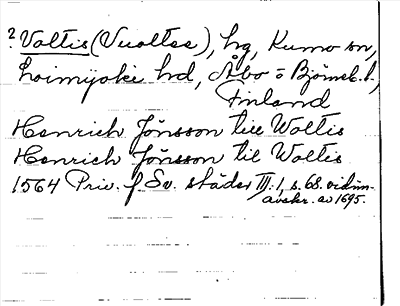 ? Valtis (Vualtse), hg, Kumo sn,
Loimijoki hd, Åbo o Björneb. l.,
Finland
Henrich Jönsson till Woltis
Henrich Jönsson til Woltis
1564 Priv. f Sv. städer III:1, s. 68. vidim-
avskr. av 1695.